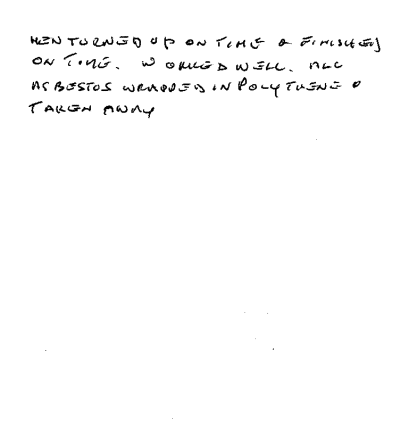 MEN TURNED UP ON TIME & FINISHED
ON TIME. WORKED WELL. ALL
ASBESTOS WRAPPED IN POLYTHENE &
TAKEN AWAY